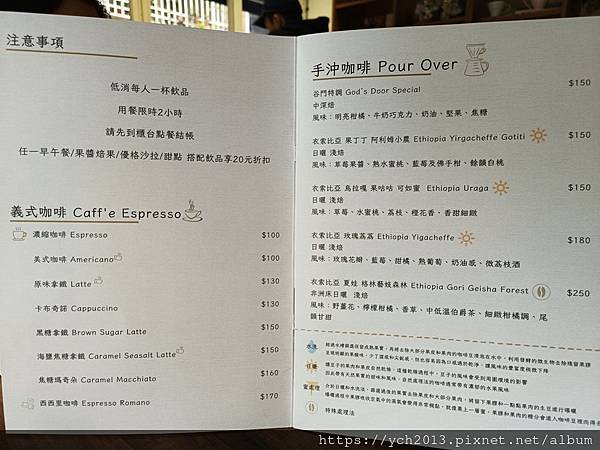 注意事項
低消每人一杯飲品
用餐限時2小時
請先到櫃台點餐結帳
任一早午餐/果醬焙果/優格沙拉/甜點 搭配飲品享20元折扣
義式咖啡 Caff'e Espresso
濃縮咖啡 Espresso $100
美式咖啡 Americano $100
原味拿鐵 Latte $130
卡布奇諾 Cappuccino $130
黑糖拿鐵 Brown Sugar Latte $150
海鹽焦糖拿鐵 Caramel Seasalt Latte $150
焦糖瑪奇朵 Caramel Macchiato $160
西西里咖啡 Espresso Romano $170
手沖咖啡 Pour Over
谷門特調 God's Door Special $150
中深焙
風味：明亮柑橘、牛奶巧克力、奶油、堅果、焦糖
衣索比亞 果丁丁 阿利姆小農 Ethiopia Yirgacheffe Gotiti $150
日曬 淺焙
風味：草莓果醬、熟水蜜桃、藍莓及佛手柑、餘韻白桃
衣索比亞 烏拉嘎 果咕咕 可如蜜 Ethiopia Uraga $150
日曬 淺焙
風味：草莓、水蜜桃、荔枝、橙花香、香甜細緻
衣索比亞 玫瑰荔荔 Ethiopia Yigacheffe $180
日曬 淺焙
風味：玫瑰花瓣、藍莓、甜橘、熟葡萄、奶油感、微荔枝酒
衣索比亞 夏娃 格林藝妓森林 Ethiopia Gori Geisha Forest $250
非洲床日曬 淺焙
風味：野薑花、檸檬柑橘、香草、中低溫伯爵茶、細緻柑橘調、尾
韻甘甜
水洗
日曬
蜜處理
特殊處理法
https://ych2013.pixnet.net/album